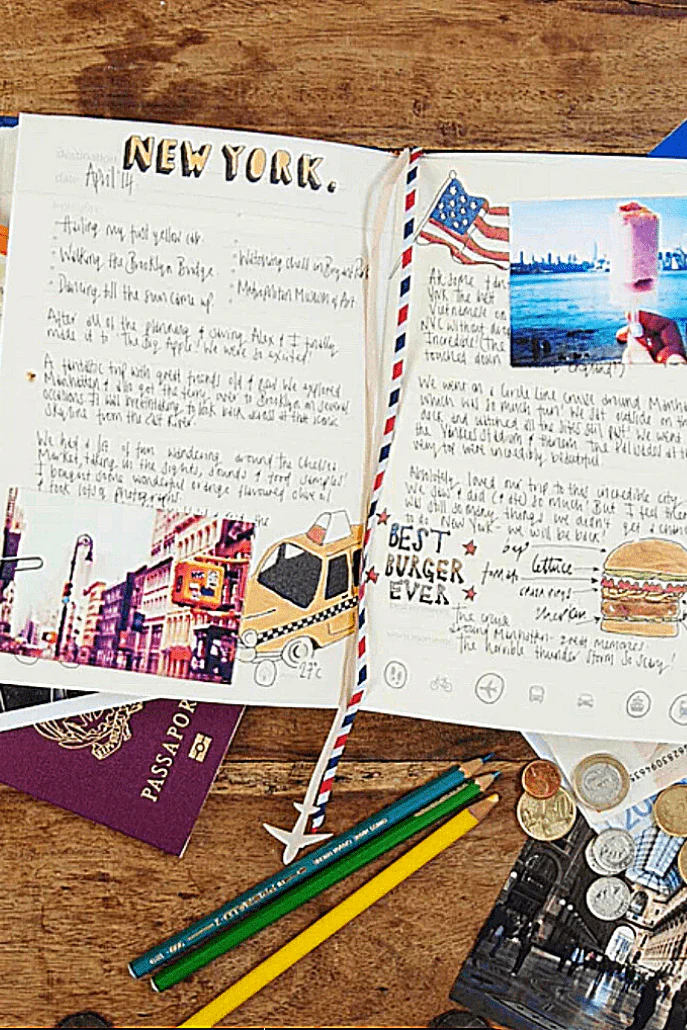 destination
NEW YORK.
date April '14
Hailing my first yellow cab
Walking the Brooklyn Bridge
Dancing till the sun came up
Watching chess in Bryant Park
Metropolitan Museum of Art
After all of the planning & saving Alex & I finally
made it to 'The Big Apple'! We were so excited!
A fantastic trip with great friends old & new. We explored
Manhattan & also got the ferry over to Brooklyn on several
occasions. It was breathtaking to look back across at that iconic
skyline from the East River.
We had a lot of fun wandering around the Chelsea
Market, taking in the sights, sounds & food samples!
I bought some wonderful orange flavoured olive oil
& took lots of photographs.
27°C
York the best
Vietnamese
NYC without
Incredible! (The
touched down
England!)
We went on a Circle Line cruise around Manha
which was so much fun! We sat outside on the
deck and watched all the sites sail past. We went
the Yankees stadium & Harlem. The Palisades at th
very top were incredibly beautiful.
Absolutely loved our trip to this incredible city.
We saw & did (& ate) so much! But I feel there
was still so many things we didn't get a chance
to do. New York - we will be back!
BEST
BURGER
EVER
lettuce
tomato
The cruise
around Manhattan - great memories.
The horrible thunder storm. So scary!
PASSAPOR